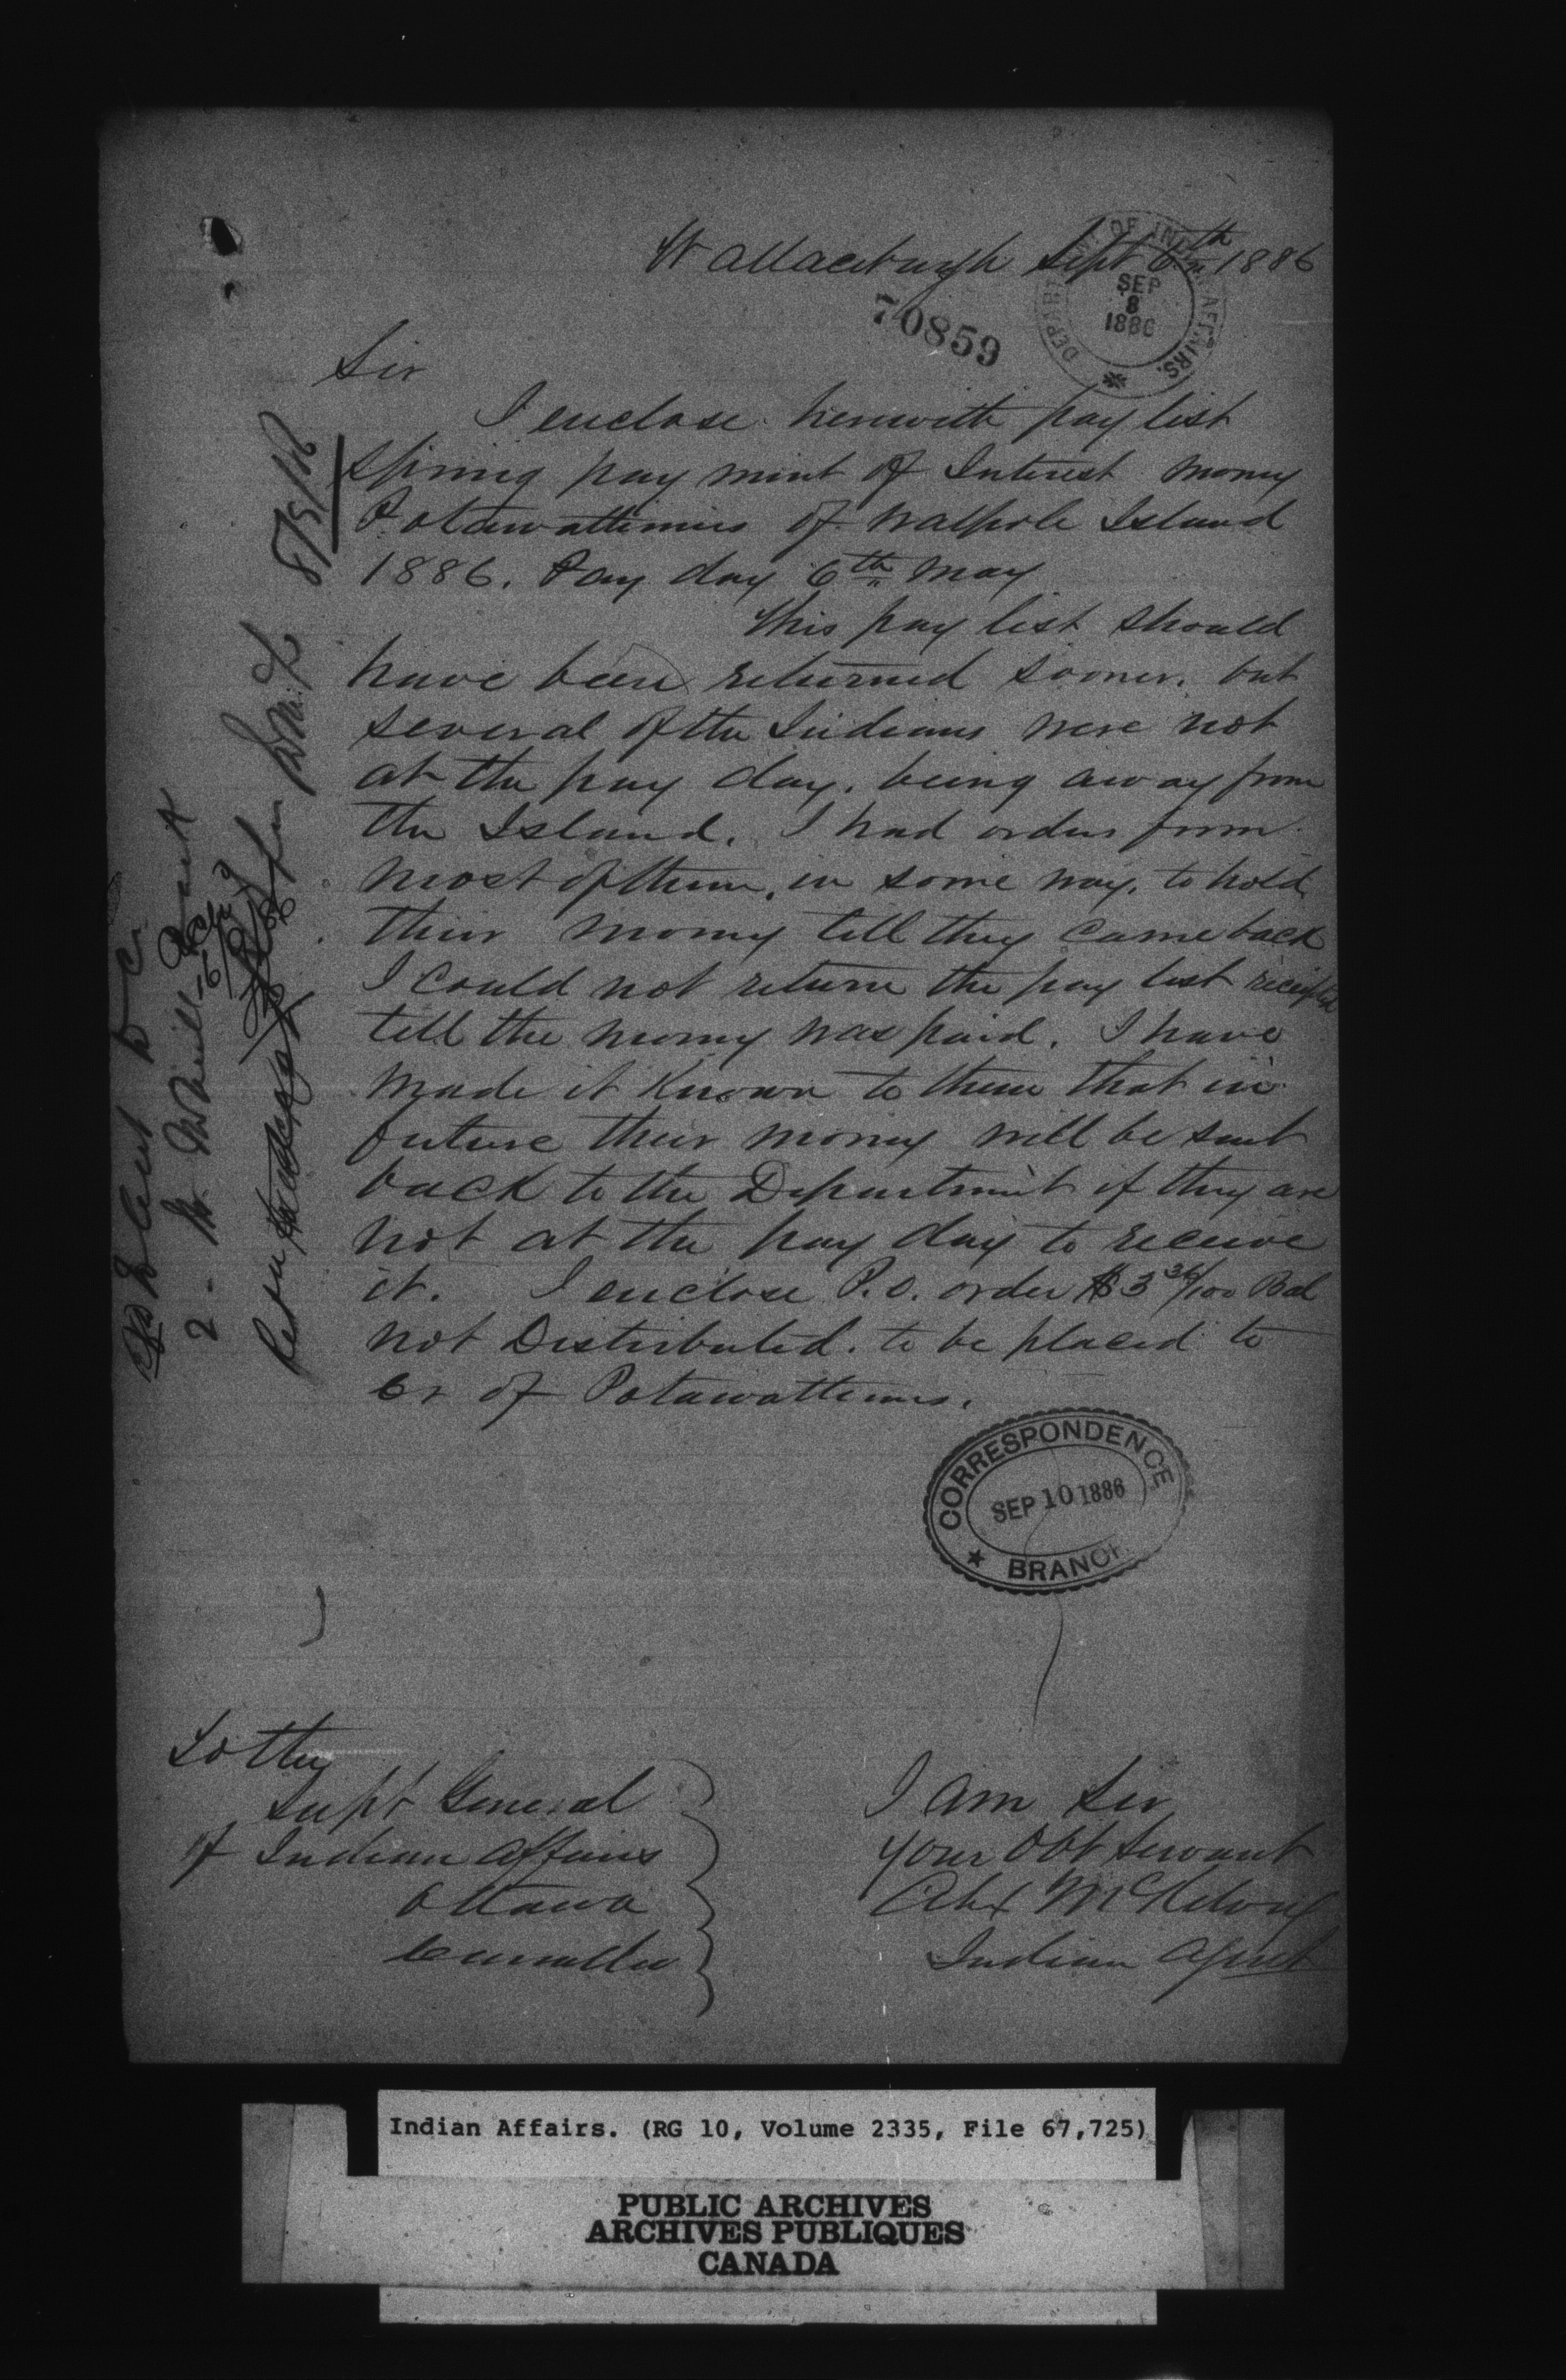 Wallaceburgh Sept 6th 1886
DEPARTMENT OF INDIAN AFFAIRS.
SEP
8
1886
70859
Sir
I enclose herewith pay list
Spring pay ment of Interest money
Potawattimies of Walpole Island
1886. Pay day 6th May
This pay list should
have been returned sooner. but
several of the Indians were not
at the pay day. being away from
the Island. I had orders from
most of them, in some way, to hold
their money till they came back
I could not return the pay list receipted
till the money was paid. I have
made it known to them that in
future their money will be sent
back to the Department if they are
not at the pay day to receive
it. I enclose P.O. order $3 36/100 Bal
not Distributed. to be placed to
Cr of Potawattimies.
CORRESPONDENCE
SEP 10 1886
BRANCH
To the
Supt General
of Indian Affairs
Ottawa
Canada
I am Sir
your Obt Servant
Alex McKelvey
Indian Agent
8/9/86
Indian Affairs. (RG 10, Volume 2335, File 67,725)
PUBLIC ARCHIVES
ARCHIVES PUBLIQUES
CANADA